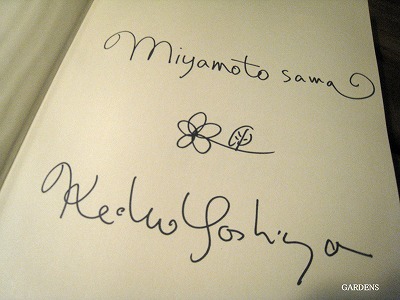 Miyamoto sama
Keiko Yoshiya
GARDENS